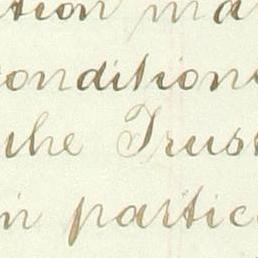 tion ma
conditions
the Trust
in partic